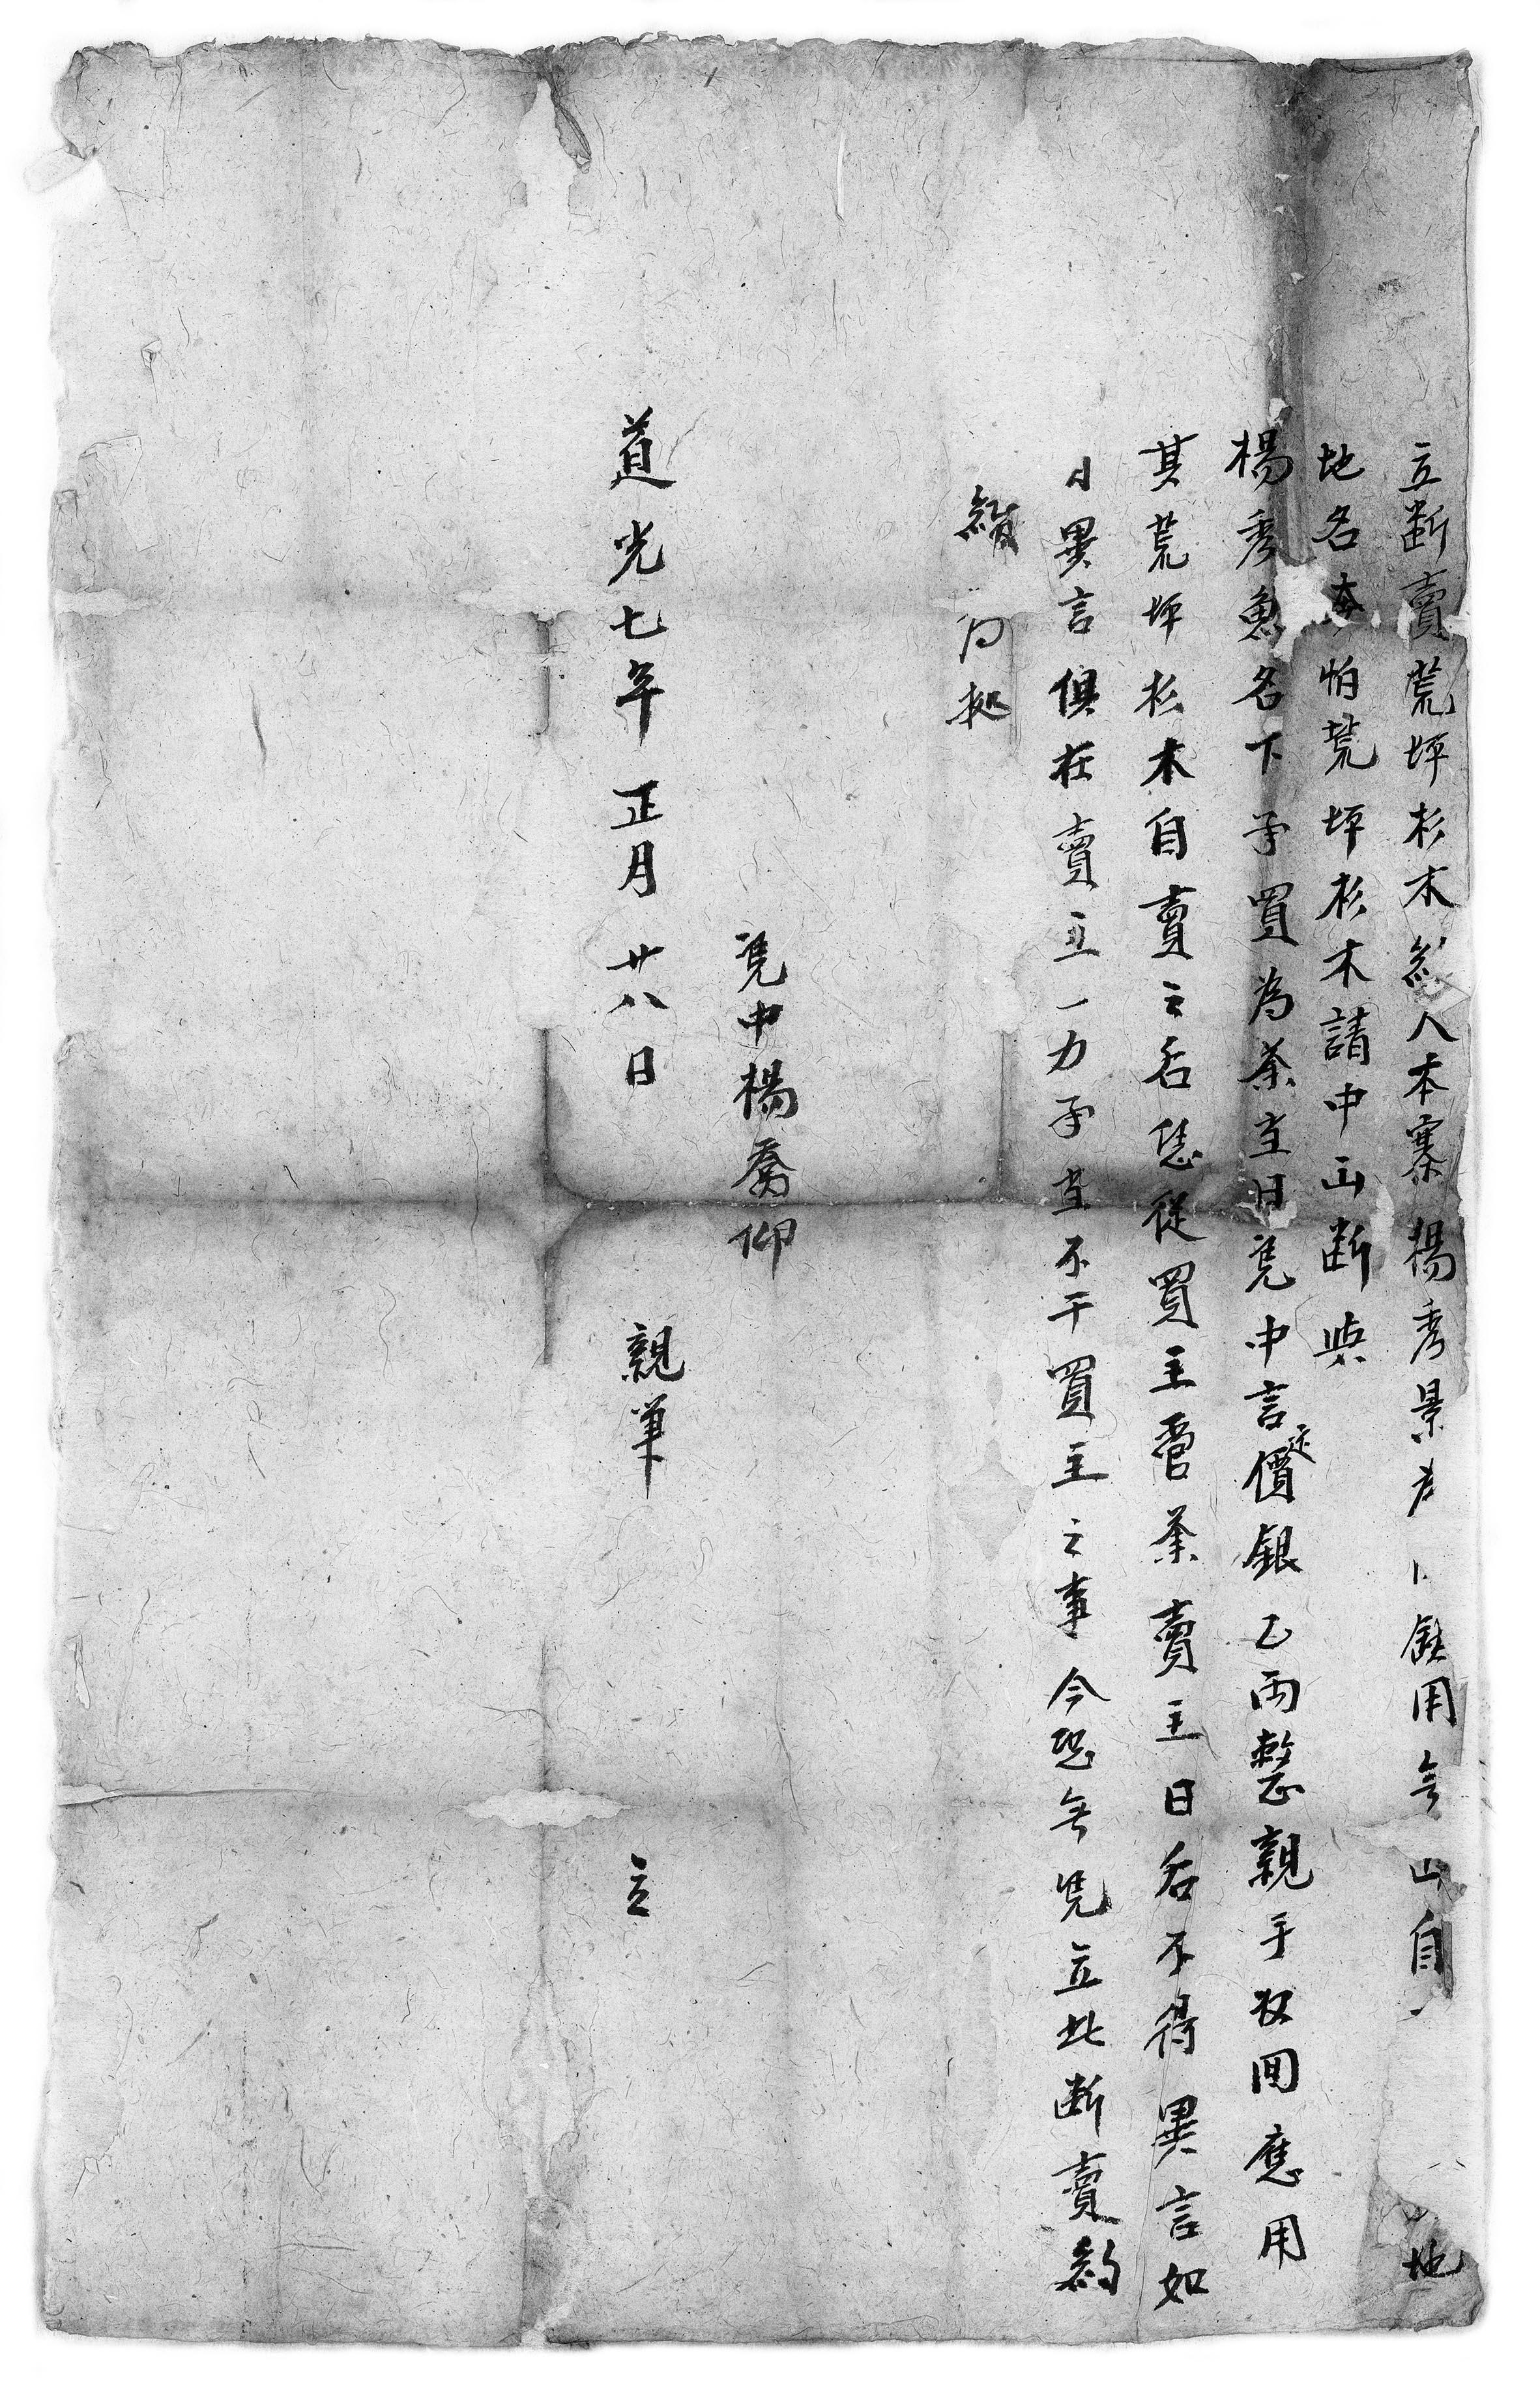 立断賣荒坪杉木約人本寨楊秀景為銀用無出自地
地名怕荒坪杉木請中出断與
楊秀魁名下承買為業当日凭中言定價銀乙両整親手收囬應用
其荒坪杉木自賣之后恁從買主管業賣主日后不得異言如
日異言俱在賣主一力承当不干買主之事今恐無凭立此断賣約
為拠
凭中楊喬仰
道光七年正月廿八日 親筆 立